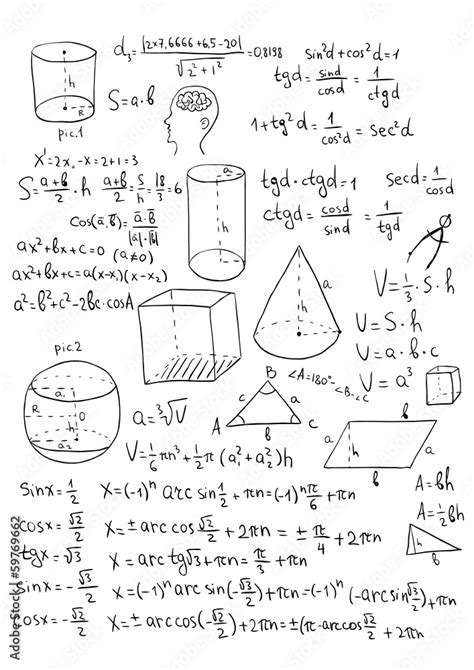 d₃ = |2x7,6666 + 6,5 - 20| / √(2² + 1²) = 0,8198
sin²d + cos²d = 1
h
R
pic.1
S = a · b
tgd = sind / cosd = 1 / ctgd
1 + tg²d = 1 / cos²d = sec²d
x' = 2x, -x = 2 + 1 = 3
S = (a + b) / 2 · h
(a + b) / 2 = S / h = 18 / 3 = 6
a
h
tgd · ctgd = 1
Secd = 1 / cosd
Cos(ā, b̄) = ā · b̄ / |ā| · |b̄|
ctgd = cosd / sind = 1 / tgd
ax² + bx + c = 0 (a ≠ 0)
ax² + bx + c = a(x - x₁)(x - x₂)
a² = b² + c² - 2bc · cosA
h
a
V = 1/3 · S · h
V = S · h
V = a · b · c
V = a³
pic.2
a₁
R
O
h
a₂
a = ³√V
B
c
a
A
b
C
∠A = 180° - ∠B - ∠c
h
a
b
V = 1/6 πh³ + 1/2 π (a₁² + a₂²) h
A = bh
A = 1/2 bh
h
b
Sinx = 1/2 x = (-1)ⁿ arc sin 1/2 + πn = (-1)ⁿ π/6 + πn
cosx = √2/2 x = ± arc cos √2/2 + 2πn = ± π/4 + 2πn
tgx = √3 x = arc tg√3 + πn = π/3 + πn
sinx = - √3/2 x = (-1)ⁿ arc sin(-√3/2) + πn = (-1)ⁿ (-arcsin √3/2) + πn
cosx = - √2/2 x = ± arc cos(-√2/2) + 2πn = ± (π - arc cos √2/2 + 2πn
Adobe Stock | #59769662